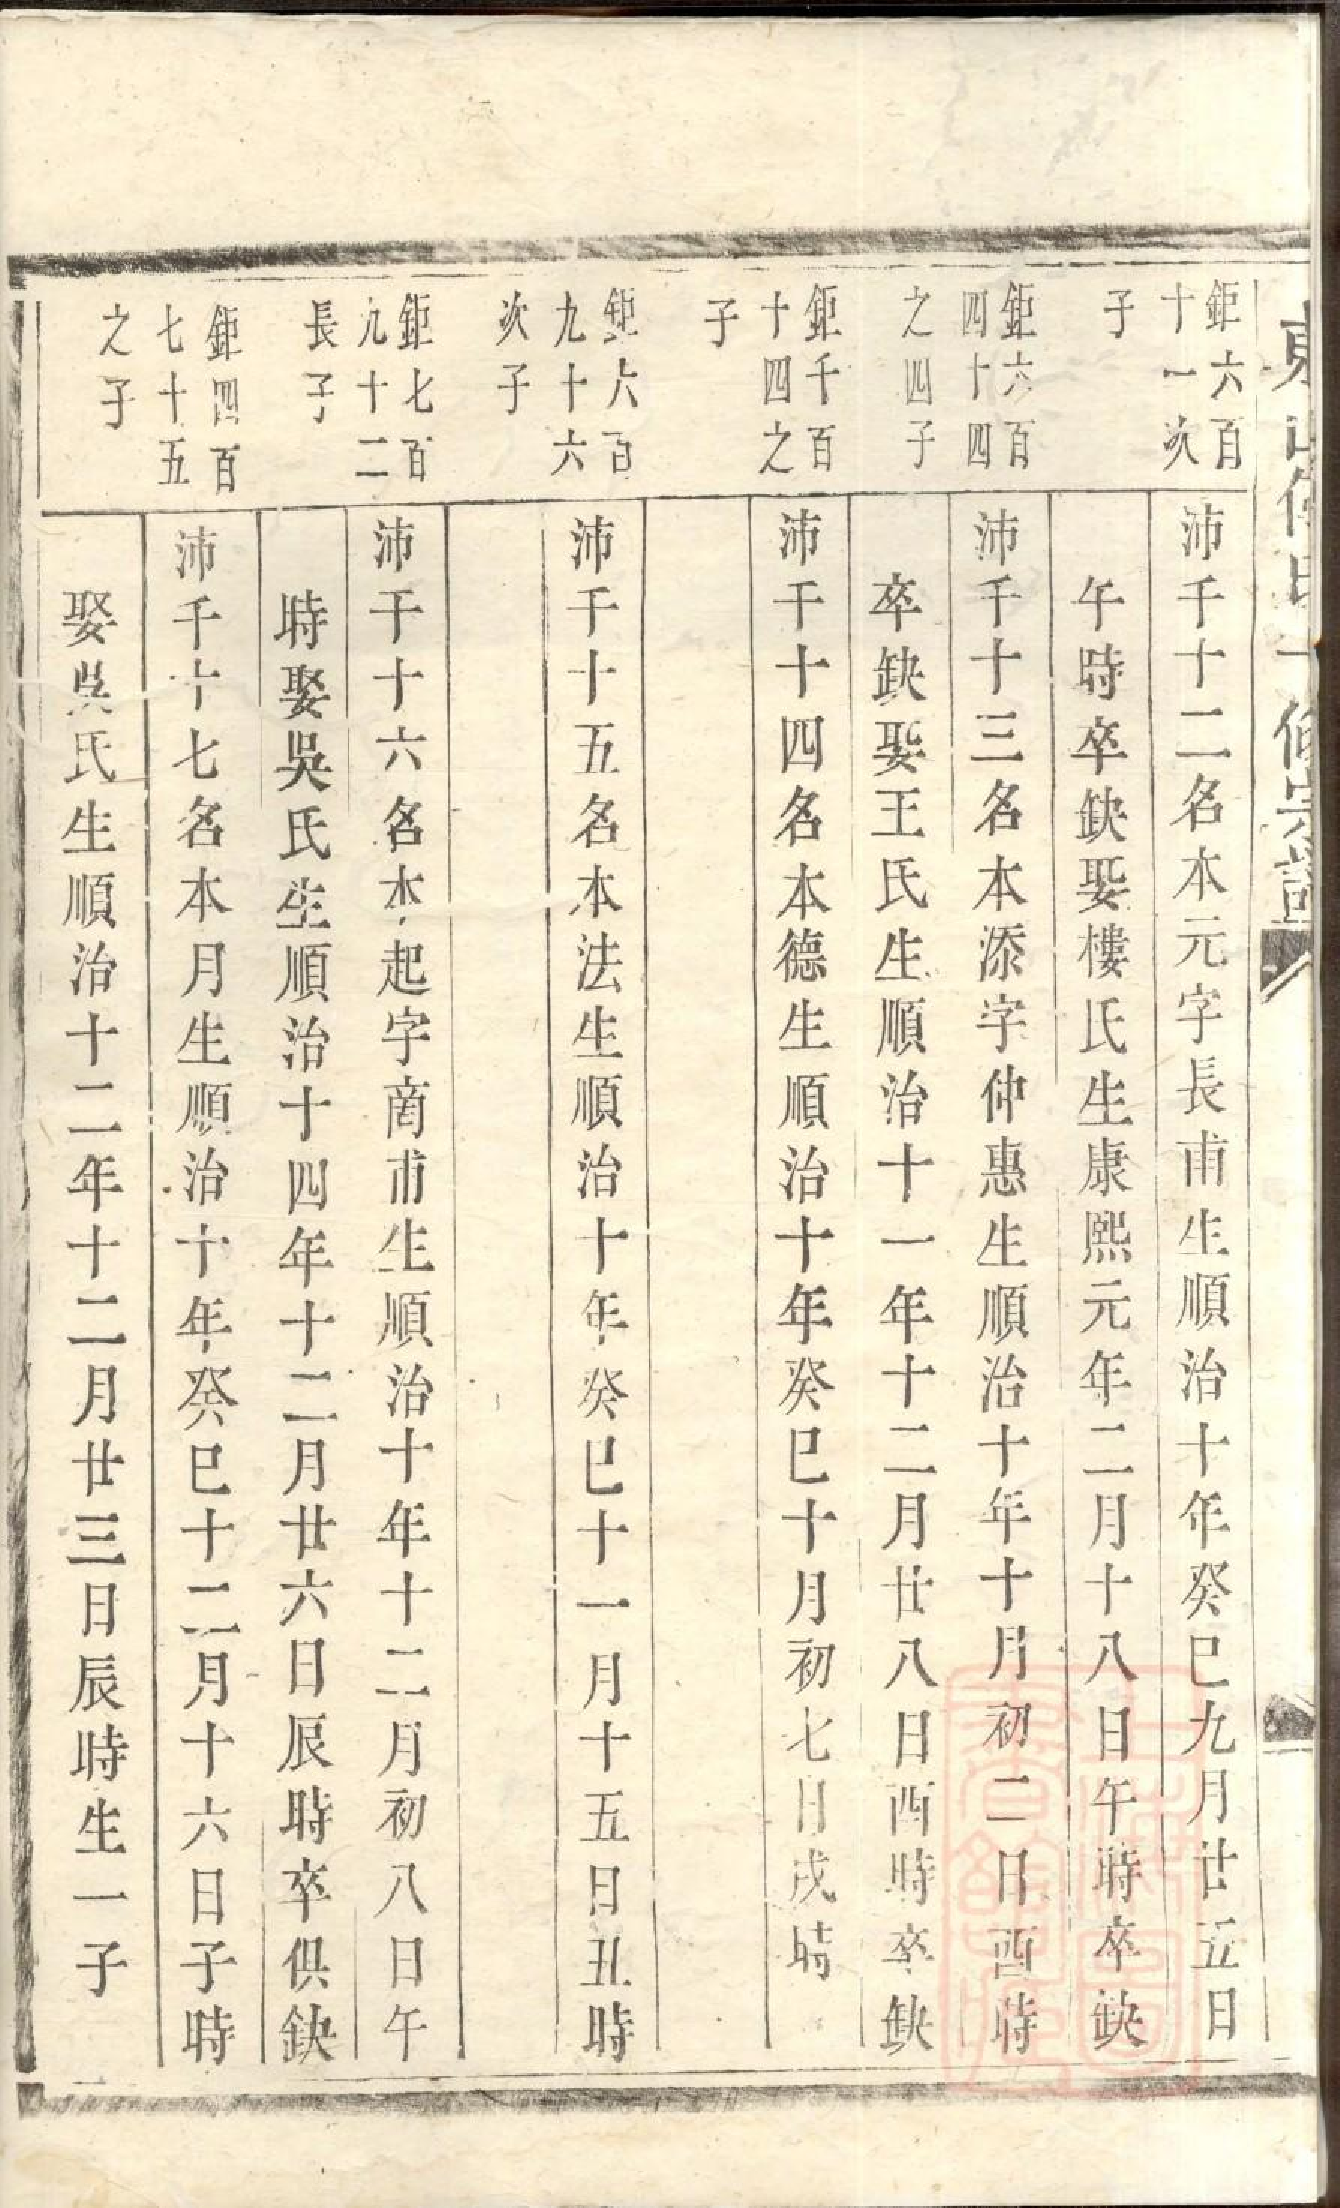 鉅六百
十一次
子
沛千十二名本元字長甫生順治十年癸巳九月廿五日
午時卒缺娶樓氏生康熙元年二月十八日午時卒缺
鉅六百
四十四
之四子
沛千十三名本添字仲惠生順治十年十月初二日酉時
卒缺娶王氏生順治十一年十二月廿八日酉時卒缺
鉅千百
十四之
子
沛千十四名本德生順治十年癸巳十月初七日戌時
鉅六百
九十六
次子
沛千十五名本法生順治十年癸巳十一月十五日丑時
鉅七百
九十二
長子
沛千十六名本起字商甫生順治十年十二月初八日午
時娶吳氏生順治十四年十二月廿六日辰時卒俱缺
鉅四百
七十五
之子
沛千十七名本月生順治十年癸巳十二月十六日子時
娶吳氏生順治十二年十二月廿三日辰時生一子